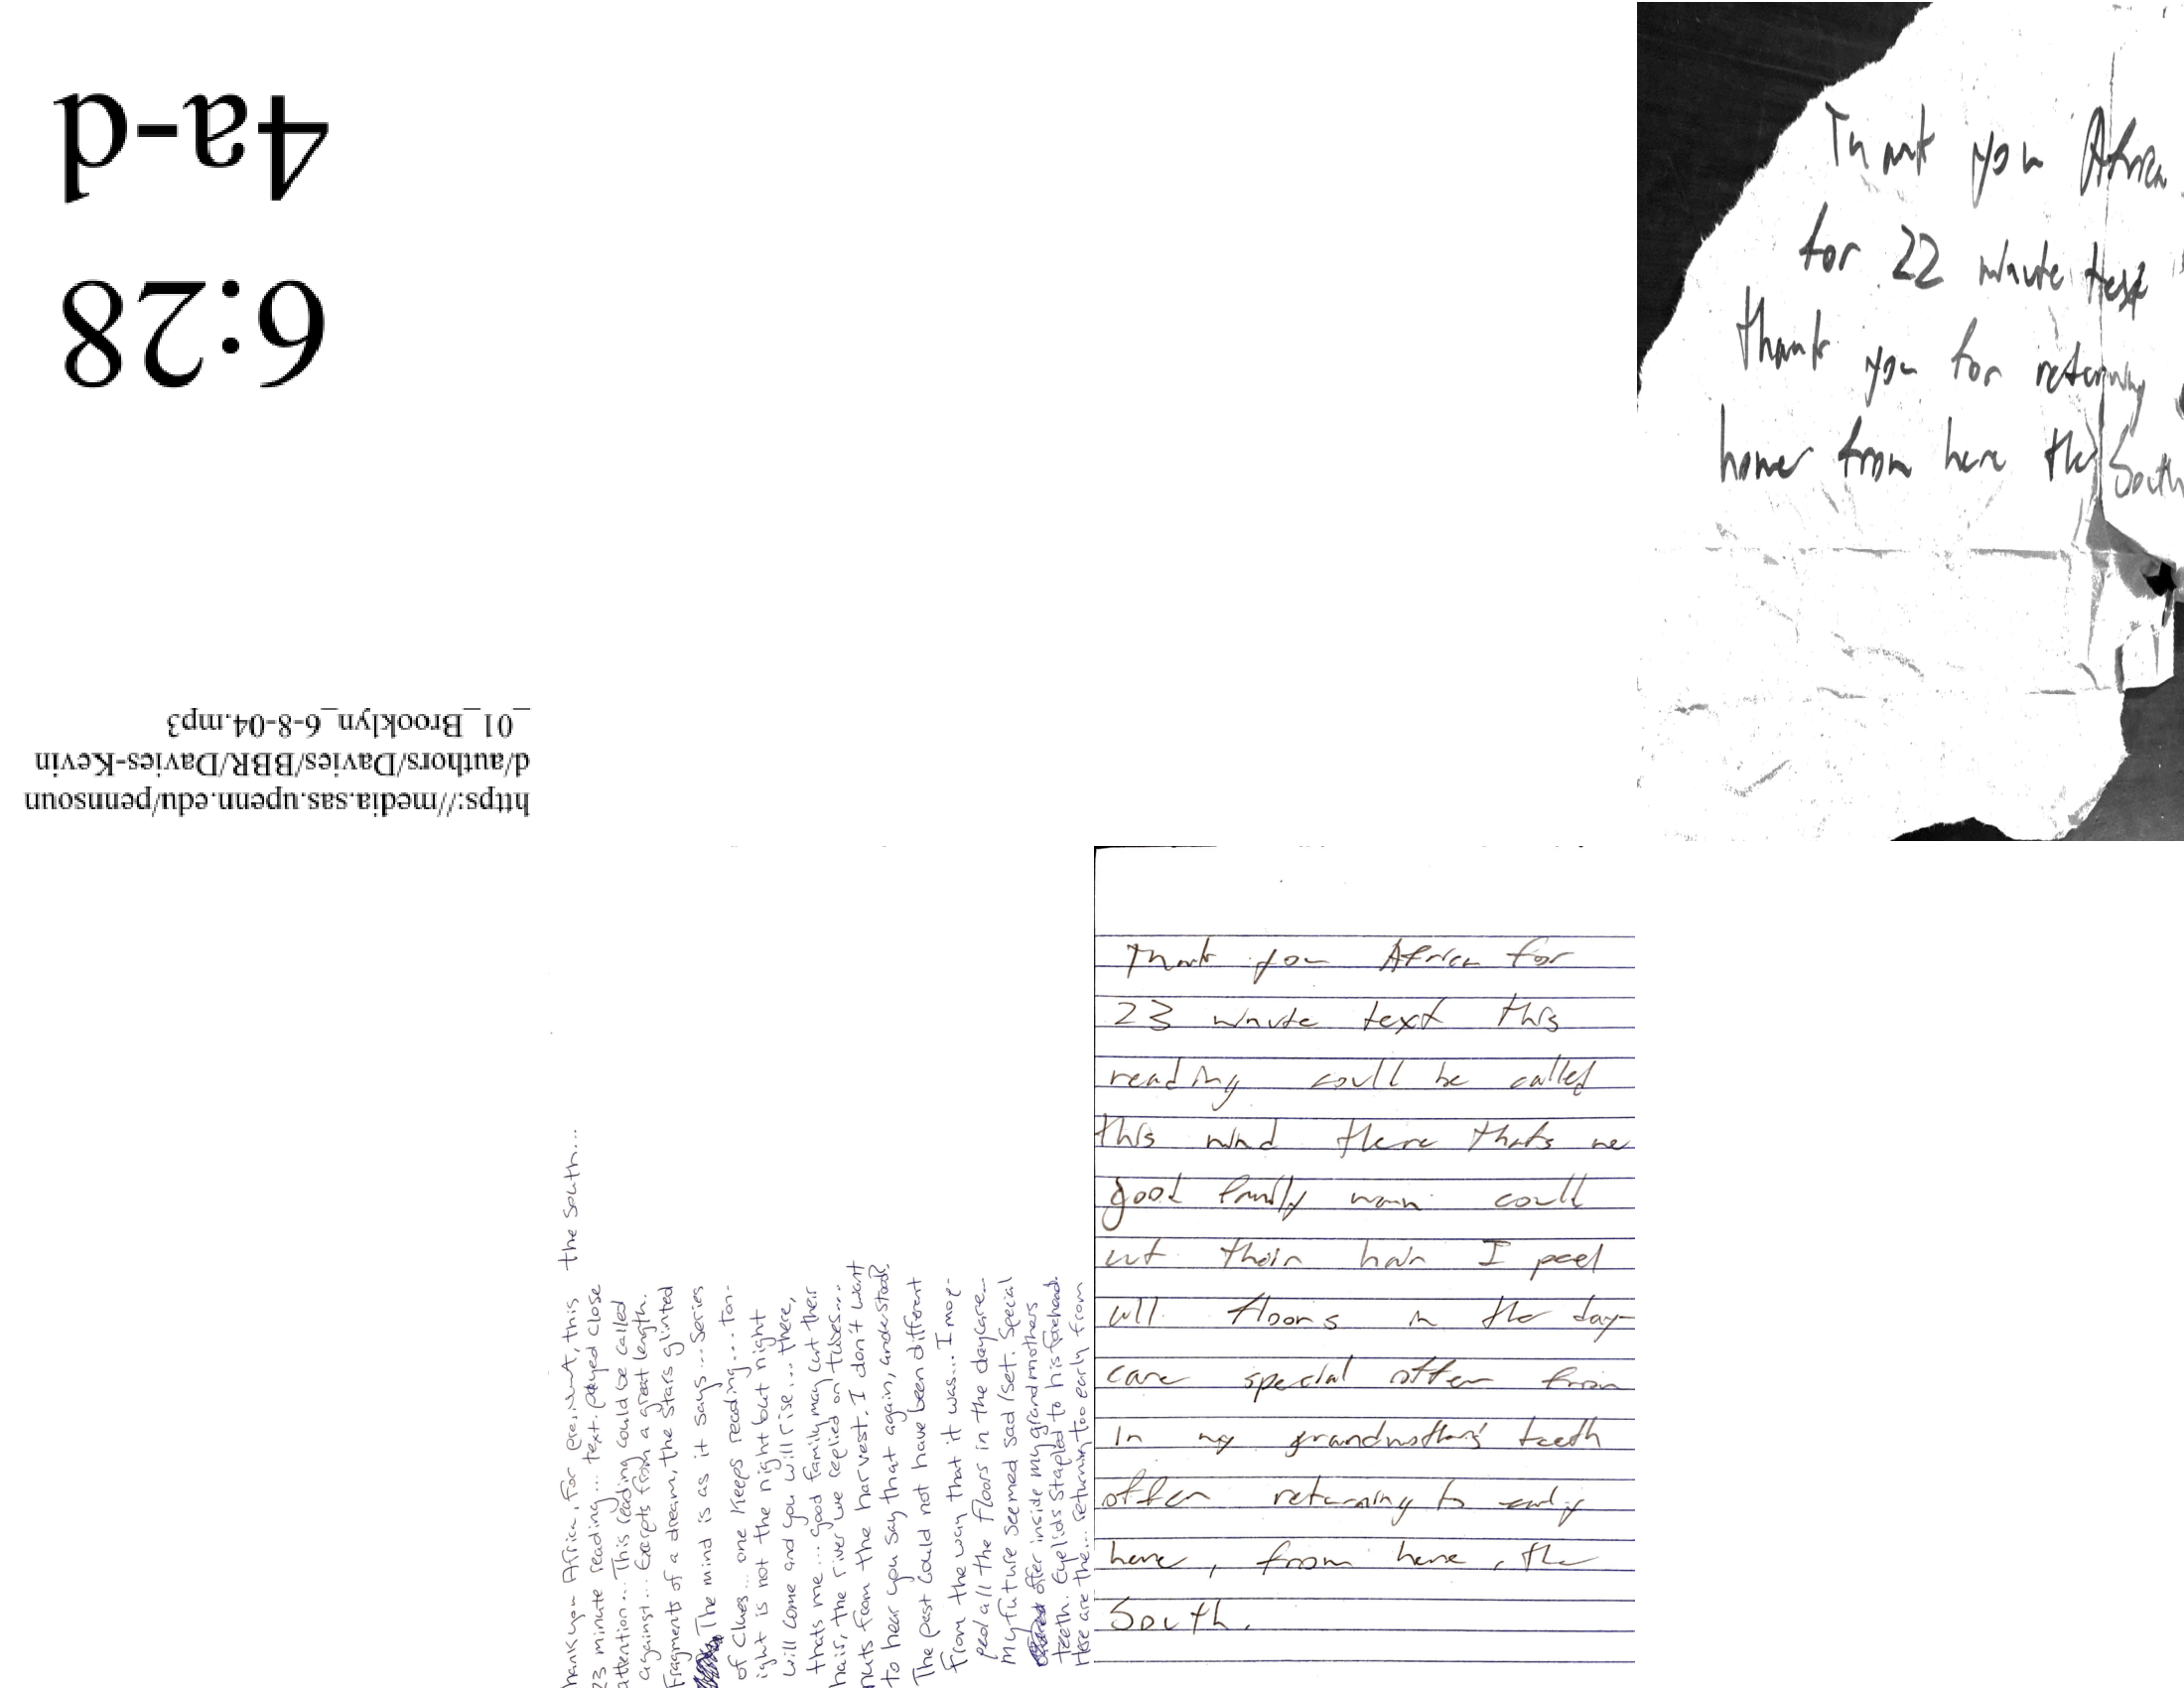 4a-d
6:28
https://media.sas.upenn.edu/pennsoun
d/authors/Davies/BBR/Davies-Kevin
_01_Brooklyn_6-8-04.mp3
Thank you Africa
for 22 minute text
thank you for returning
home from here the South
hank you Africa, for this the South...
23 minute reading... text. played close
attention... This reading could be called
against... Excerpts from a great length.
Fragments of a dream, the stars glinted
The mind is as it says... series
of clues... one keeps reading... Ton-
ight is not the night but night
will come and you will rise... there,
thats me... good family may cut their
hair, the river we replied on tubes....
nuts from the harvest. I don't want
to hear you say that again, understood?
The past could not have been different
from the way that it was... I mop-
ped all the floors in the daycare...
My future seemed sad/set. Special
offer inside my grandmothers
teeth. Eyelids stapled to his forehead.
Here are the... returning too early from
Thank you Africa for
23 minute text this
reading could be called
this mind there thats me
good family man could
cut their hair I peel
all floors in the day-
care special offer from
in my grandmothers' teeth
offer returning to early
here, from here, the
South.